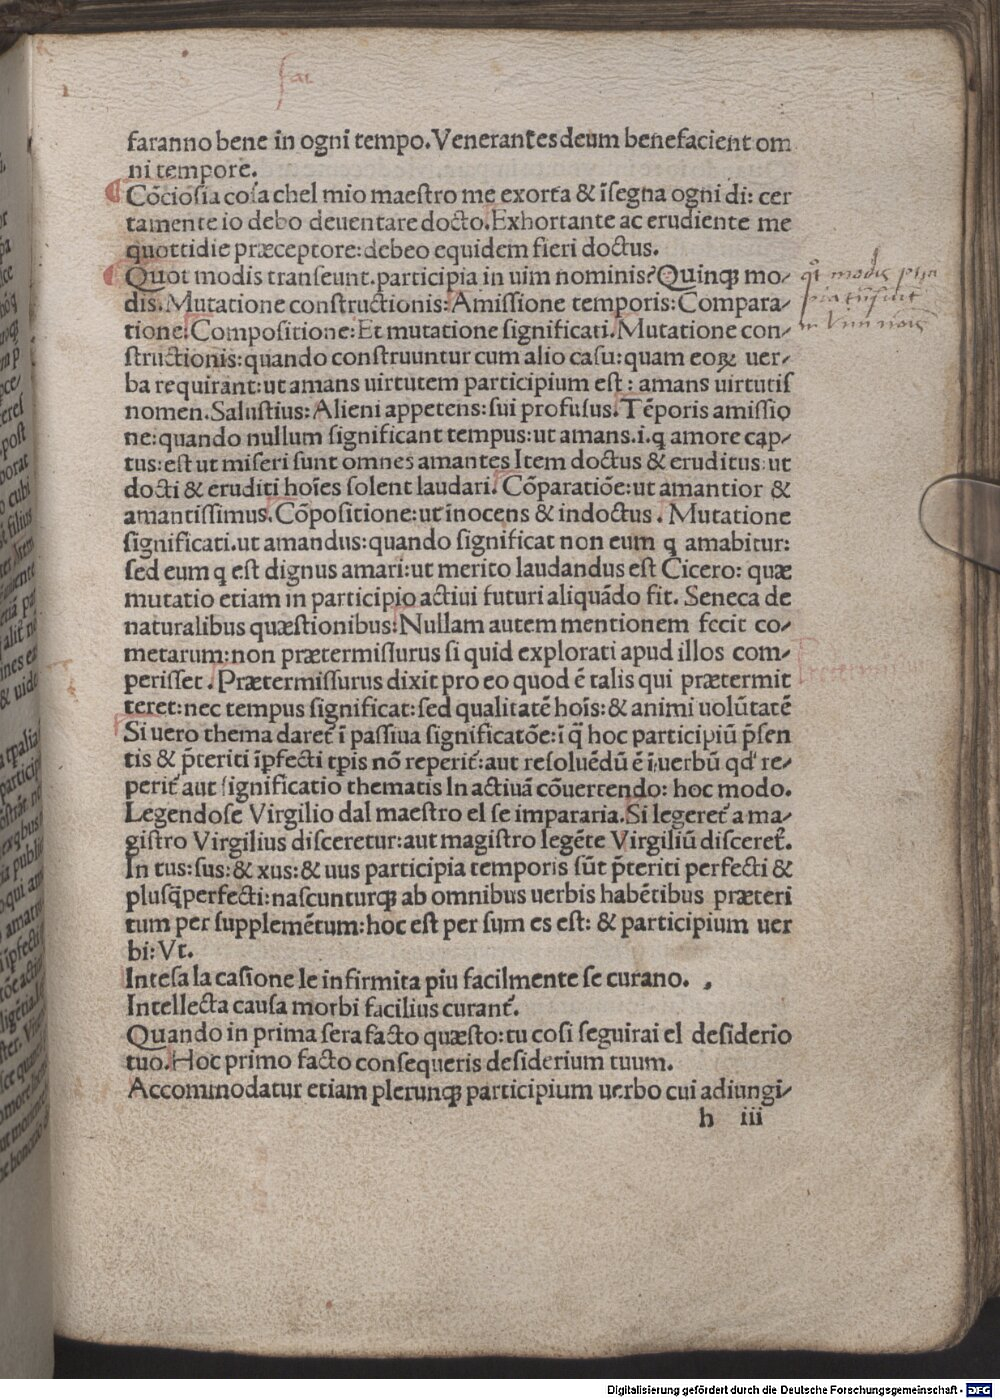 faranno bene in ogni tempo.Venerantes deum benefacient om
ni tempore.
Cōciosia cosa chel mio maestro me exorta & īsegna ogni di: cer
tamente io debo deuentare docto.Exhortante ac erudiente me
quottidie præceptore:debeo equidem fieri doctus.
Quot modis transeunt.participia in uim nominis?Quinqꝫ mo⸗
dis.Mutatione constructionis:Amissione temporis:Compara⸗
tione:Compositione:Et mutatione significati.Mutatione con⸗
structionis:quando construuntur cum alio casu:quam eoꝝ uer⸗
ba requirant:ut amans uirtutem participium est: amans uirtutis
nomen.Salustius:Alieni appetens:sui profusus.Tēporis amissio
ne:quando nullum significant tempus:ut amans.i.q amore cap⸗
tus:est ut miseri sunt omnes amantes Item doctus & eruditus:ut
docti & eruditi hoīes solent laudari.Cōparatiōe:ut amantior &
amantissimus.Cōpositione:ut īnocens & indoctus. Mutatione
significati.ut amandus:quando significat non eum q amabitur:
sed eum q est dignus amari:ut merito laudandus est Cicero: quæ
mutatio etiam in participio actiui futuri aliquādo fit. Seneca de
naturalibus quæstionibus:Nullam autem mentionem fecit co⸗
metarum:non prætermissurus si quid explorati apud illos com⸗
perisset.Prætermissurus dixit pro eo quod ē talis qui prætermit
teret:nec tempus significat:sed qualitatē hoīs:& animi uolūtatē
Si uero thema daret̄ ī passiua significatōe:ī q̄ hoc participiū p̄sen
tis & p̄teriti īpfecti tpis nō reperit̄:aut resoluēdū ē ī uerbū qd' re⸗
perit̄ aut significatio thematis In actiuā cōuertendo: hoc modo.
Legendose Virgilio dal maestro el se impararia.Si legeret̄ a ma⸗
gistro Virgilius disceretur:aut magistro legēte Virgiliū disceret̄.
In tus:sus:& xus:& uus participia temporis sūt p̄teriti perfecti &
plusq̄perfecti:nascunturqꝫ ab omnibus uerbis habētibus præteri
tum per supplemētum:hoc est per sum es est: & participium uer
bi:Vt.
Intesa la casione le infirmita piu facilmente se curano.
Intellecta causa morbi facilius curant̄.
Quando in prima sera facto quæsto:tu cosi seguirai el desiderio
tuo.Hoc primo facto consequeris desiderium tuum.
Accommodatur etiam plerunqꝫ participium uerbo cui adiungi⸗
h iii
Digitalisierung gefördert durch die Deutsche Forschungsgemeinschaft - DFG